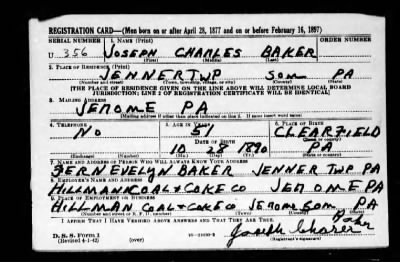 REGISTRATION CARD—(Men born on or after April 28, 1877 and on or before February 16, 1897)
SERIAL NUMBER 1. NAME (Print) ORDER NUMBER
U 356 JOSEPH CHARLES BAKER
(First) (Middle) (Last)
2. PLACE OF RESIDENCE (Print)
JENNER TWP SOM PA
(Number and street) (Town, township, village, or city) (County) (State)
[THE PLACE OF RESIDENCE GIVEN ON THE LINE ABOVE WILL DETERMINE LOCAL BOARD
JURISDICTION; LINE 2 OF REGISTRATION CERTIFICATE WILL BE IDENTICAL]
3. MAILING ADDRESS
JEROME PA
[Mailing address if other than place indicated on line 2. If same insert word same]
4. TELEPHONE 5. AGE IN YEARS 6. PLACE OF BIRTH
NO 51 CLEARFIELD
DATE OF BIRTH (Town or county)
10 28 1890 PA
(Exchange) (Number) (Mo.) (Day) (Yr.) (State or country)
7. NAME AND ADDRESS OF PERSON WHO WILL ALWAYS KNOW YOUR ADDRESS
FERN EVELYN BAKER JENNER TWP PA
8. EMPLOYER'S NAME AND ADDRESS
HILLMAN COAL & COKE CO JEROME PA
9. PLACE OF EMPLOYMENT OR BUSINESS
HILLMAN COAL & COKE CO JEROME SOM PA
(Number and street or R. F. D. number) (Town) (County) (State)
I AFFIRM THAT I HAVE VERIFIED ABOVE ANSWERS AND THAT THEY ARE TRUE.
D. S. S. Form 1
(Revised 4-1-42) (over)
Joseph
(Registrant's signature)